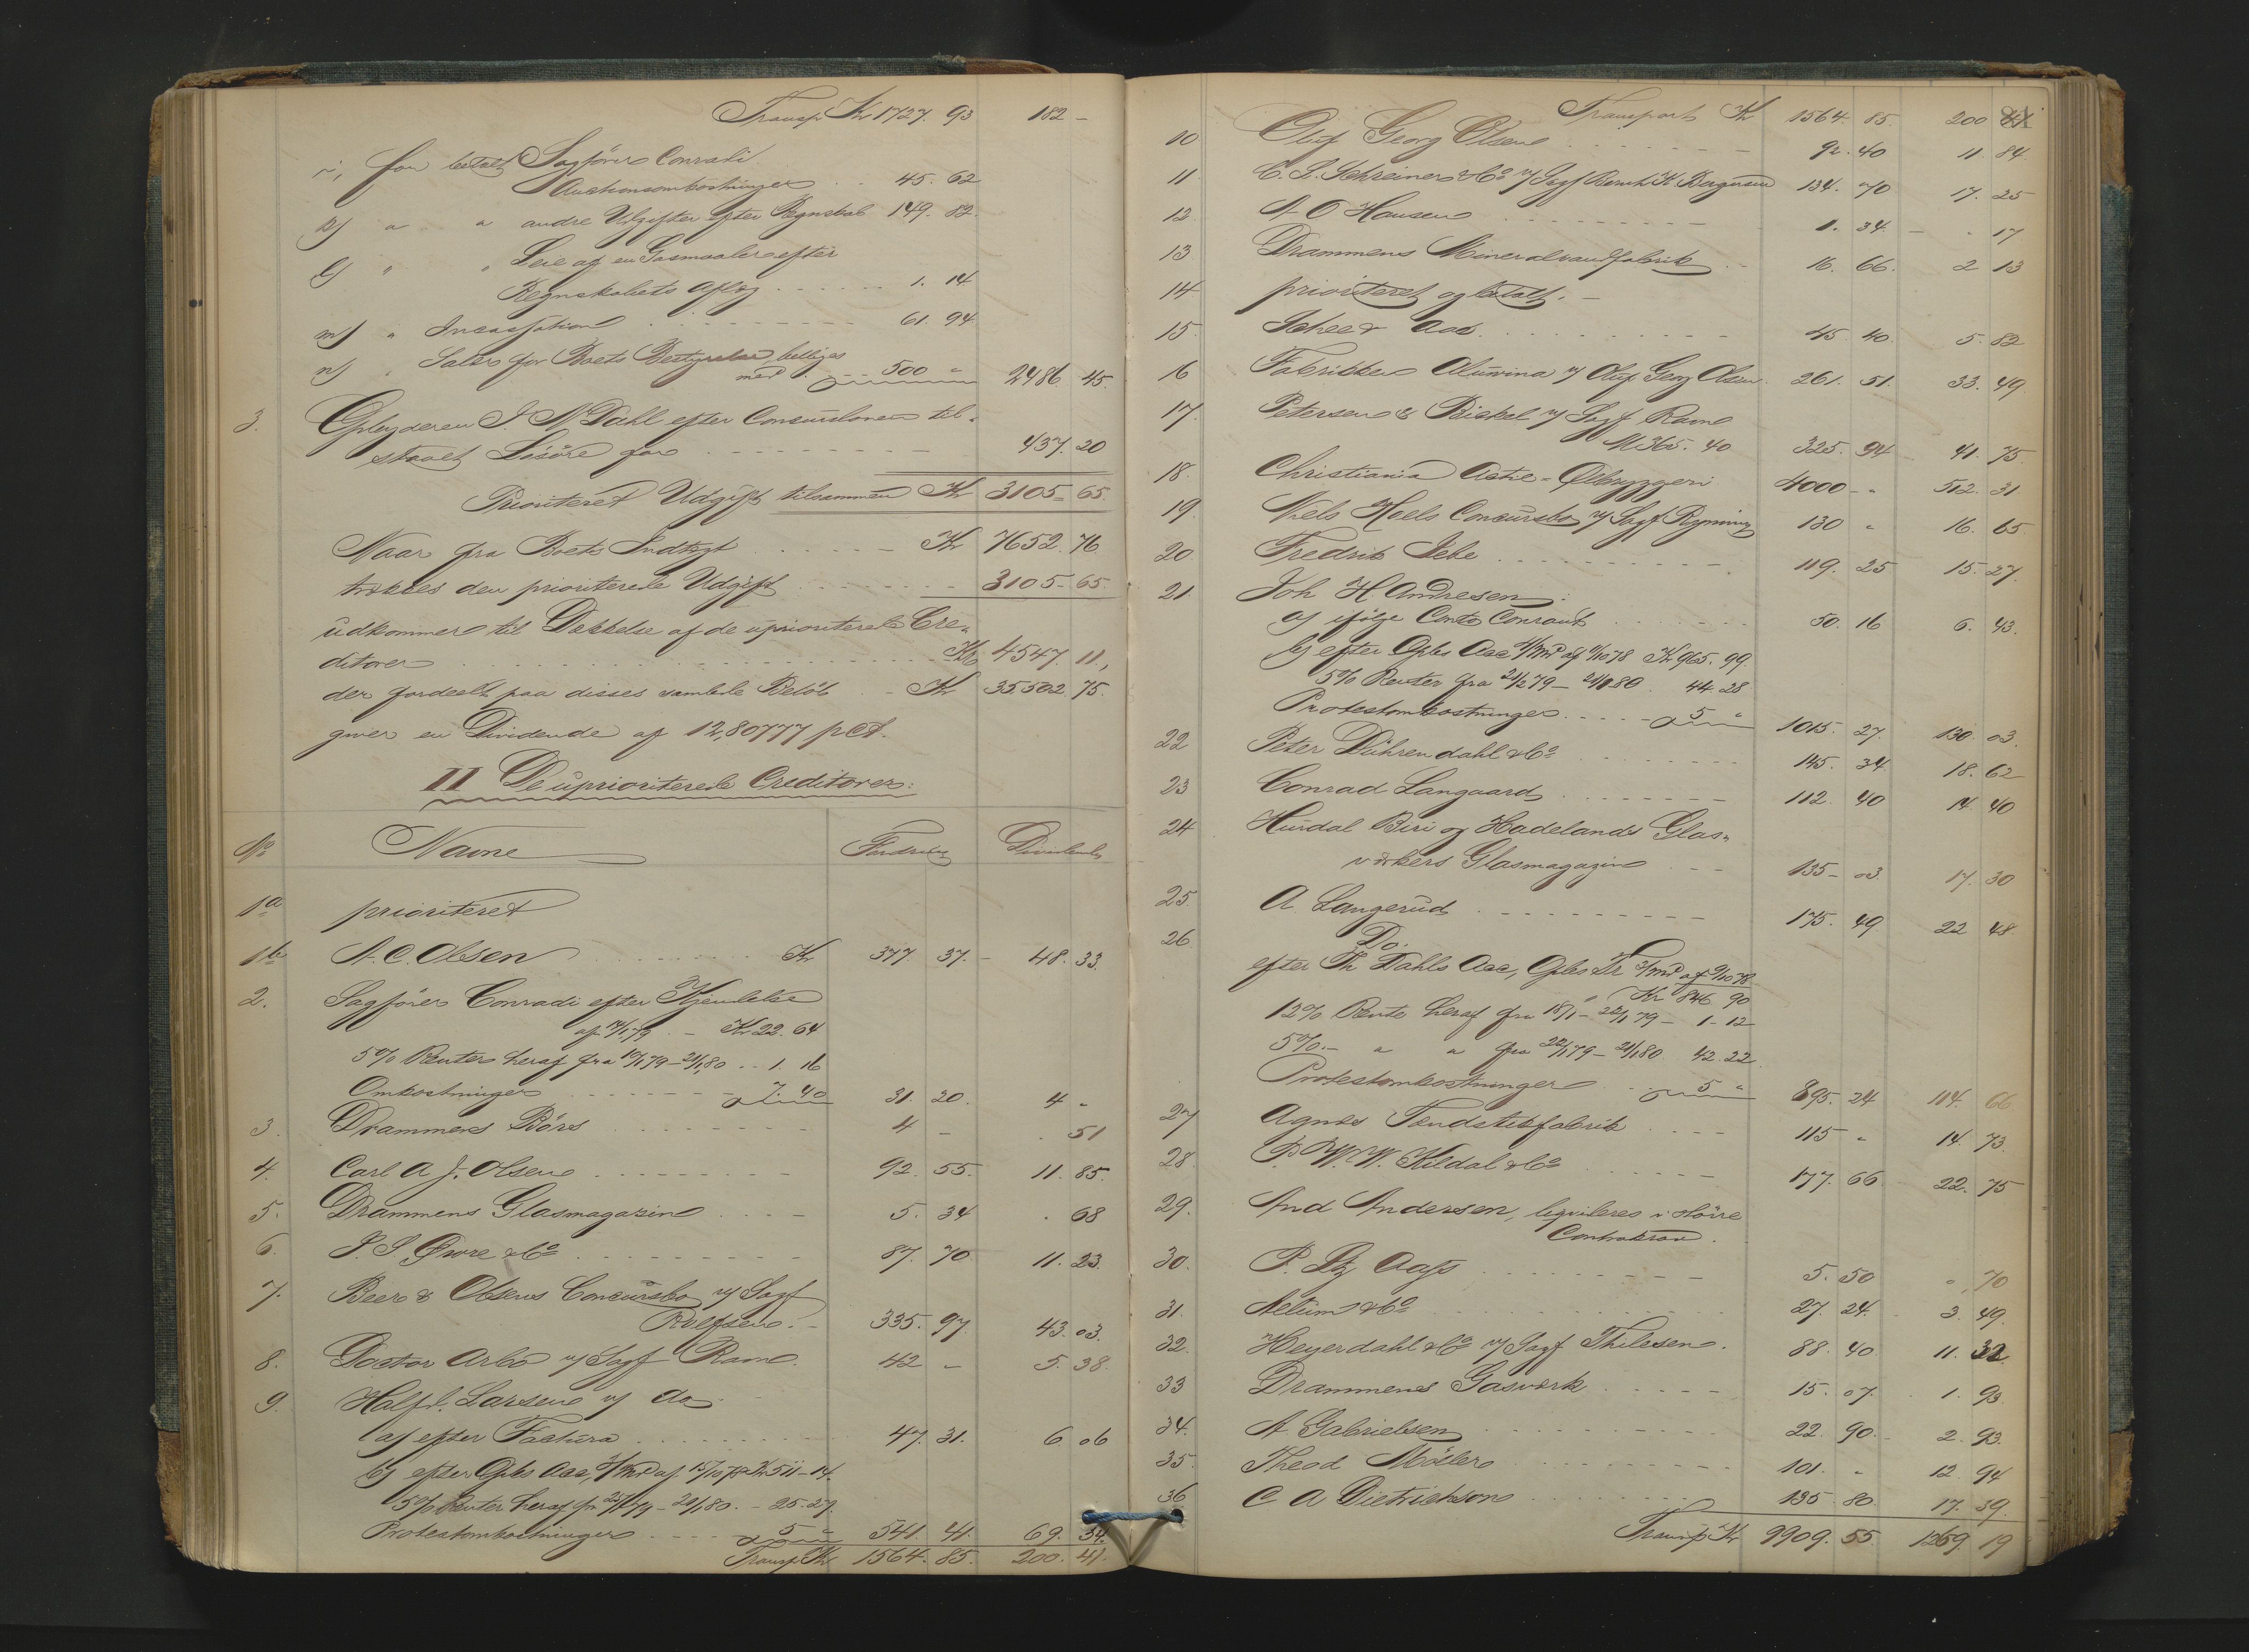 Transp. Kr 1727. 93 182 -
i, for betalt Sagfører Conradi
Auctionsomkostninger . . 45. 62
k) " " andre Udgifter efter Regnskab 149. 82.
l) " " Leie af en Gasmaaler efter
Regnskabets Aflæg . . . . . . 1. 14
m) " Incassation . . . . . . 61. 94
n) " Salær for Boets Bestyrelse, billiges
med . . . 500 " 2486. 45.
3. Gpleyderen J. N. Dahl efter Concursloven til-
staaet Løsøre for . . . . . . 437. 20
Prioriteret Udgift tilsammen Kr 3105 - 65.
Naar fra Boets Indtægt . . . . - Kr 7652. 76
trækkes den prioriterede Udgift . . . . . 3105 - 65
udkommer til Dækkelse af de uprioriterede Cre-
ditorer . . . . . . Kr 4547. 11,
der fordeelt paa disses samlede Beløb - Kr 35502. 75.
giver en Dividende af 12,80777 pCt.
II De uprioriterede Creditorer:
No Navne Fordring Dividende
1a prioriteret
1b A. C. Olsen . . . . . Kr 377 37. - 48. 33.
2. Sagfører Conradi efter Kjendelse
af 14/1 79 . - Kr 22. 64
5% Renter heraf fra 10/1 79 - 21/1 80 . . 1. 16
Omkostninger . . . . . . 7. 40 31. 20. 4 "
3. Drammens Börs . . . . . . 4 - . 51
4. Carl A J. Olsen . . . . . . 92. 55. 11. 85.
5. Drammens Glasmagazin . . . . 5. 34 . 68
6. P. S. Øwre & Co . . . . . . 87. 70 11. 23.
7. Beer & Olsens Concursbo v/ Sagf
Rolfsen. - 335. 97. 43. 03.
8. Doctor Arbo v/ Sagf Ram. 42 - 5. 38.
9. Halfd. Larsen v/ do
a) efter Factura . . . . . . 47. 31. 6. 06
b) efter Gpbs Acc, 3/Mnd af 15/10 78 Kr 511 - 14.
5% Renter heraf fra 25/1 79 - 21/1 80. - 25. 27.
Protestomkostninger . . . . 5 " 541. 41. 69. 34.
Transp. Kr 1564. 85. 200. 41.
Transport Kr 1564 85. 200 41
81
10 Oluf Georg Olsen . . . . . 92. 40 11. 84.
11 C. S. Schreiner & Co v/ Sagf Bernh. K. Bergersen 134. 70 17. 25
12 A O Hansen . . . . . . 1. 34. - . 17
13 Drammens Mineralvandfabrik . - 16. 66. 2 13
14 prioriteret og betalt. -
15. Schee & Aas . . . . . . 45 40. 5. 82
16 Fabrikken Aluwina v/ Oluf Georg Olsen. 261. 51. 33. 49
17. Petersen & Bickel v/ Sagf Ram
M 365. 40 325. 94 41. 75
18. Christiania Actie-Ølbryggeri 4000 - " 512. 31
19. Niels Hoels Concursbo v/ Sagf Rypning 130 " 16. 65
20. Fredrik Jebe . . . . . . 119. 25 15. 27.
21 Joh H. Andresen:
a) ifølge Conto Courant . . . . . 50. 16 6. 43.
b) efter Gpbs Acc 4/Mnd af 1/10 78 Kr 965. 99.
5% Renter fra 21/2 79 - 21/1 80 . 44. 28
Protestomkostninger . . . . 5 " 1015. 27. 130. 03.
22 Peter Dühren dahl & Co . . . . . 145. 34 18. 62
23 Conrad Langaard . . . . . . 112. 40 14. 40
24 Hurdal Biri og Hadelands Glas-
værkers Glasmagazin . . . 135 - 03. 17. 30
25. A. Langerud . . . . . . 175. 49 22 48.
26. Do.
efter Th Dahls Acc, Gpbs Tr 3/Mnd af 9/10 78
Kr 846 90
12% Rente heraf fra 18/1 - 22/1 79 - 1 - 12
5% - " " fra 22/1 79 - 21/1 80 42. 22.
Protestomkostninger . . . 5 " 895. 24 114. 66
27 Agnes Tændstikfabrik . . . . 115 " 14. 73.
28. P. W. W. Kildal & Co . . . . . 177. 66 22. 75
29. And Andersen, liqvideres i større
Contrakrav.
30. P. Ltz Aass . . . . . . 5. 50 ", 70
31. Melum & Co . . . . . . 27. 24. 3. 49.
32. Heyerdahl & Co v/ Sagf Thilesen. 88. 40 11. 32.
33 Drammens Gasværk . . . . . 15. 07. 1. 93.
34. A Gabrielsen . . . . . . 22. 90. 2. 93.
35. Theod Möller . . . . . . 101. " 12. 94
36 C A Dietrichson . . . . . . 135 80. 17. 39.
Transp. Kr 9909. 55. 1269. 19